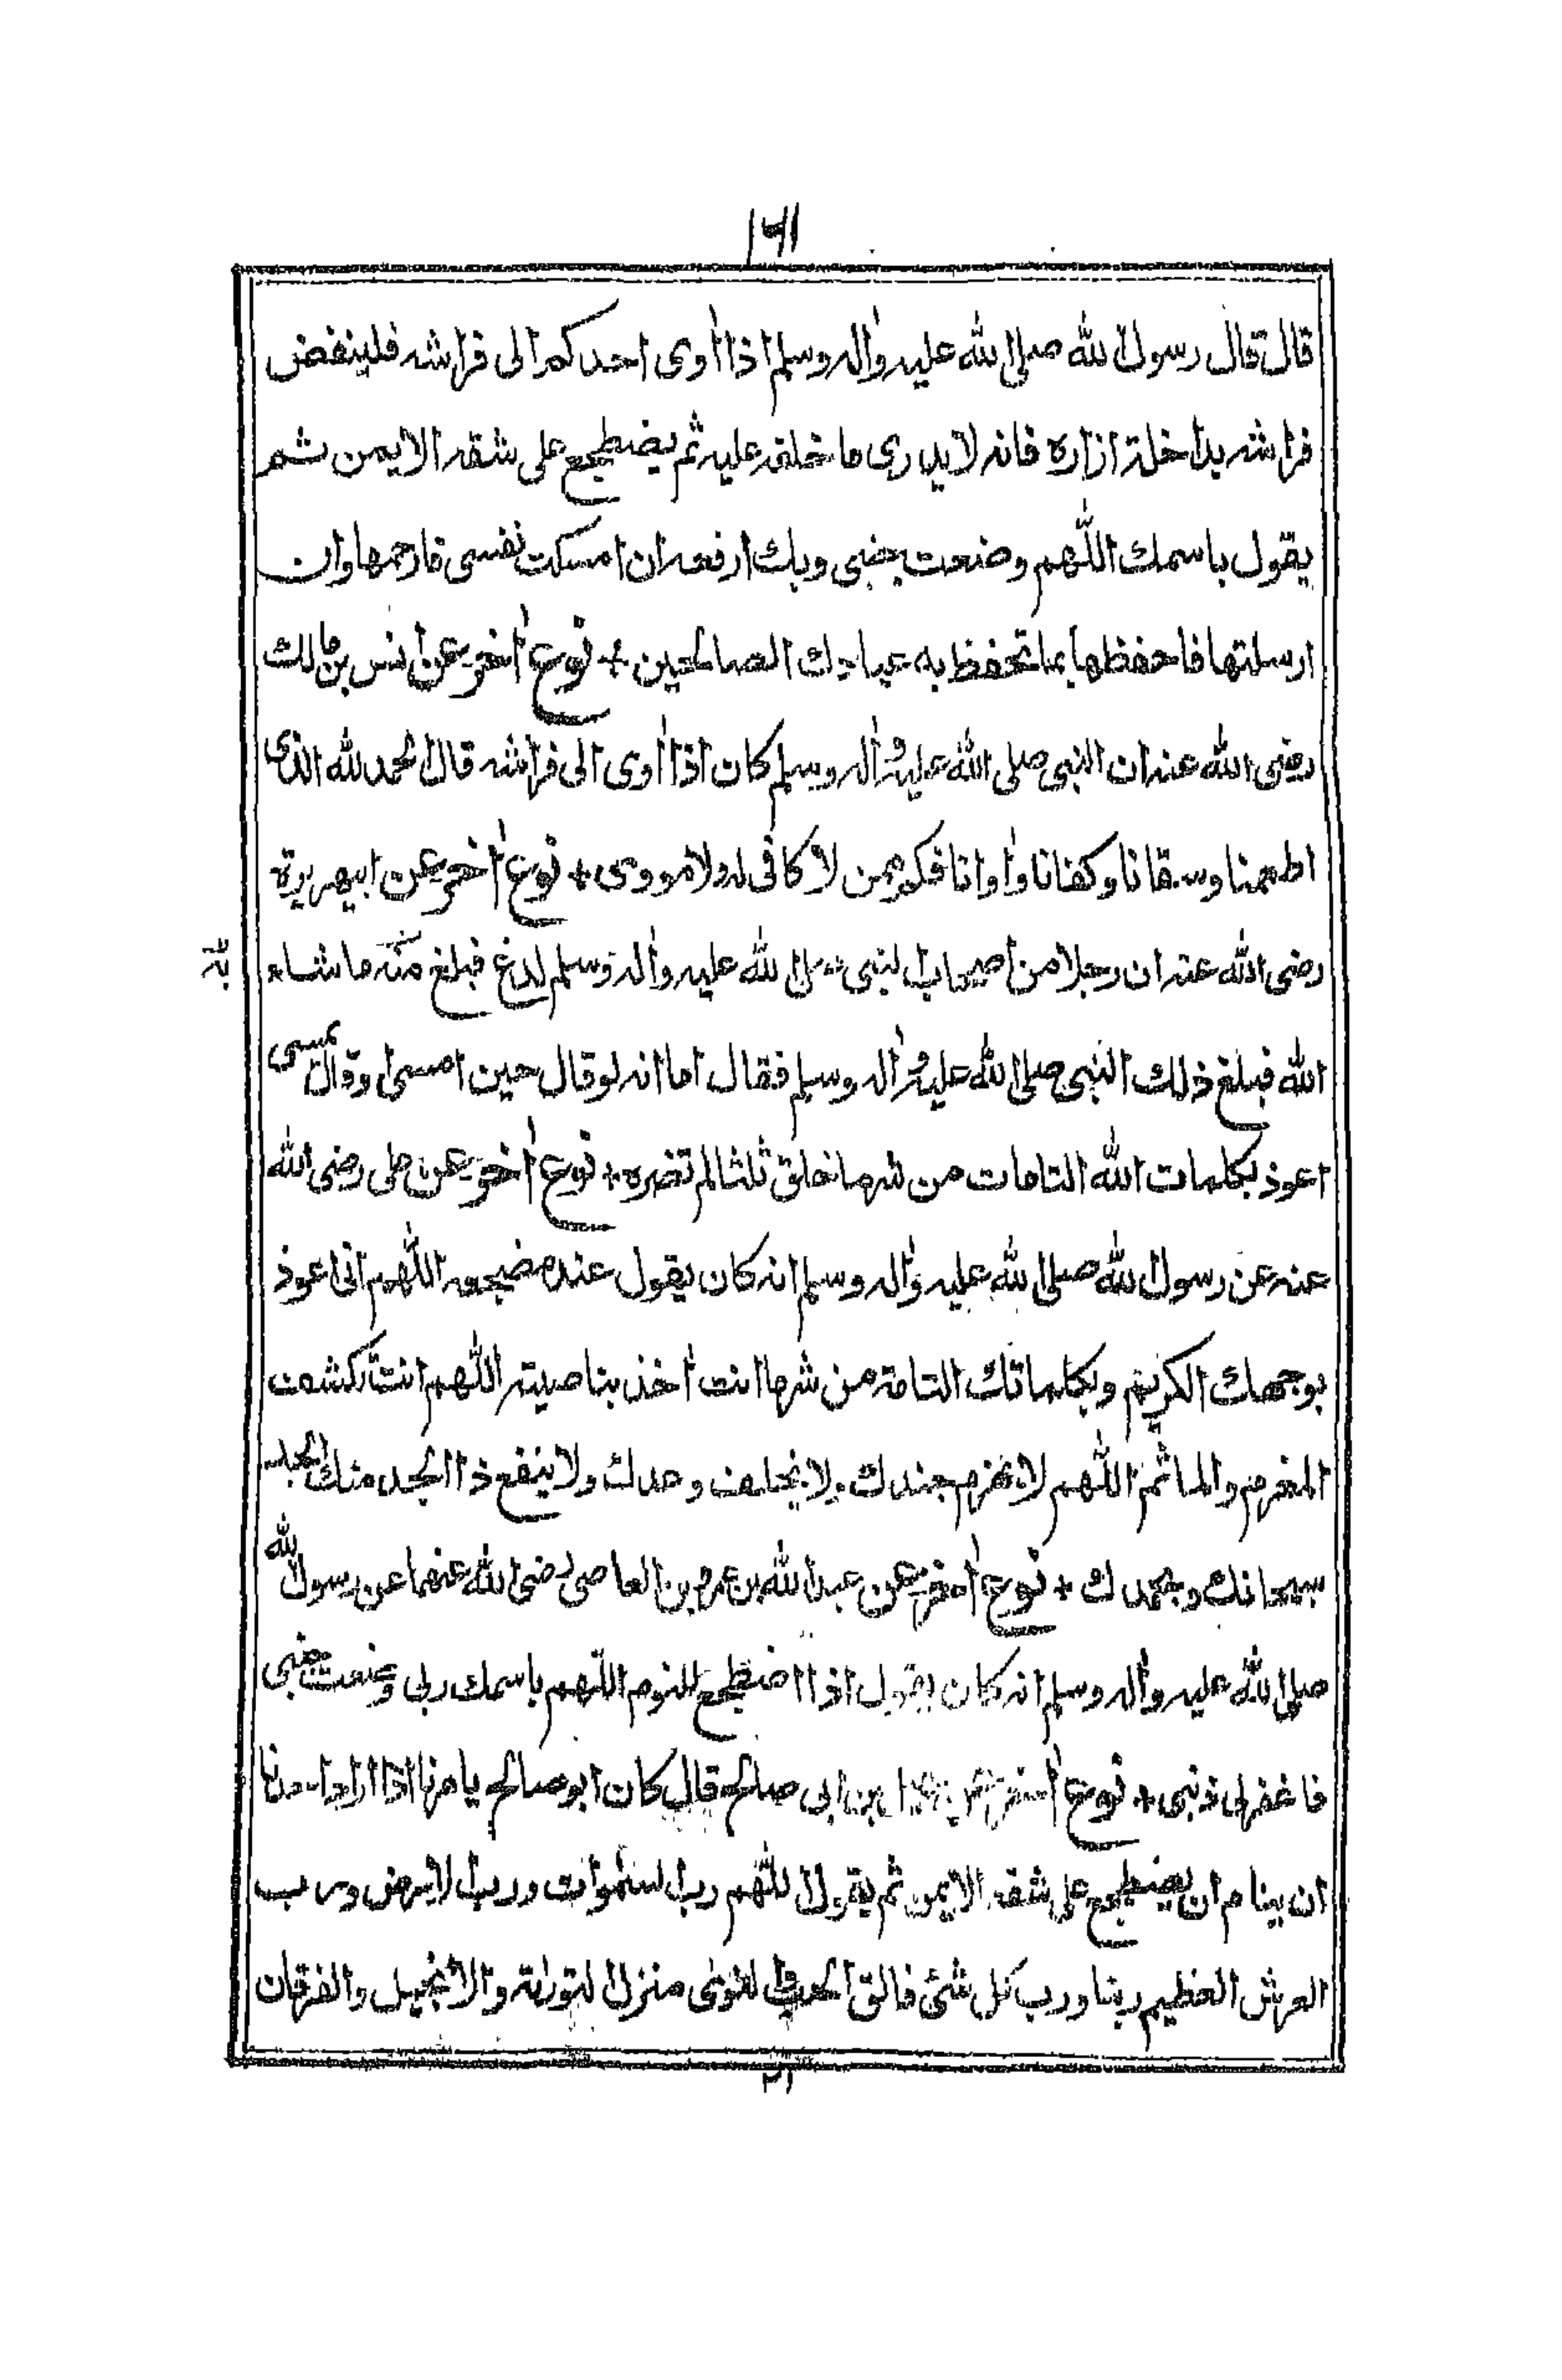 ١٦١
قال قال رسول الله صلى الله عليه واٰله وسلم اذا اٰوى احدكم الى فراشه فلينفض
فراشه بداخلة ازاره فانه لايدرى ما خلفه عليه ثم يضطجع على شقه الايمن ثم
يقول باسمك اللٰهم وضعت جنبى وبك ارفعه ان امسكت نفسى فارحمها وان
ارسلتها فاحفظها بما تحفظ به عبادك الصالحين + نوع اٰخر عن انس بن مالك
رضى الله عنه ان النبى صلى الله عليه واٰله وسلم كان اذا اٰوى الى فراشه قال الحمد لله الذى
اطعمنا وسقانا وكفانا واٰوانا فكم ممن لا كافى له ولا مووى + نوع اٰخر عن ابيهريرة
رضى الله عنه ان رجلا من اصحاب النبى صلى الله عليه واٰله وسلم لدغ فبلغ منه ما شاء
الله فبلغ ذلك النبى صلى الله عليه واٰله وسلم فقال اما انه لو قال حين امسى او قال يمسى
اعوذ بكلمات الله التامات من شر ما خلق ثلثا لم تضره + نوع اٰخر عن على رضى الله
عنه عن رسول الله صلى الله عليه واٰله وسلم انه كان يقول عند مضجعه اللٰهم انى اعوذ
بوجهك الكريم وبكلماتك التامة من شر ما انت اٰخذ بناصيته اللٰهم انت تكشف
المغرم والماثم اللٰهم لا يهزم جندك ولا يخلف وعدك ولا ينفع ذا الجد منك الجد
سبحانك وبحمدك + نوع اٰخر عن عبد الله بن عمرو بن العاصى رضى الله عنهما عن رسول الله
صلى الله عليه واٰله وسلم انه كان يقول اذا اضطجع للنوم اللٰهم باسمك ربى وضعت جنبى
فاغفر لى ذنبى + نوع اٰخر عن بن ابى صالح قال كان ابو صالح يامرنا اذا اراد احدنا
ان ينام ان يضطجع على شقه الايمن ثم يقول اللٰهم رب السمٰوات ورب الارض ورب
العرش العظيم ربنا ورب كل شئ فالق الحب والنوى منزل التورٰىة والانجيل والفرقان
٢١